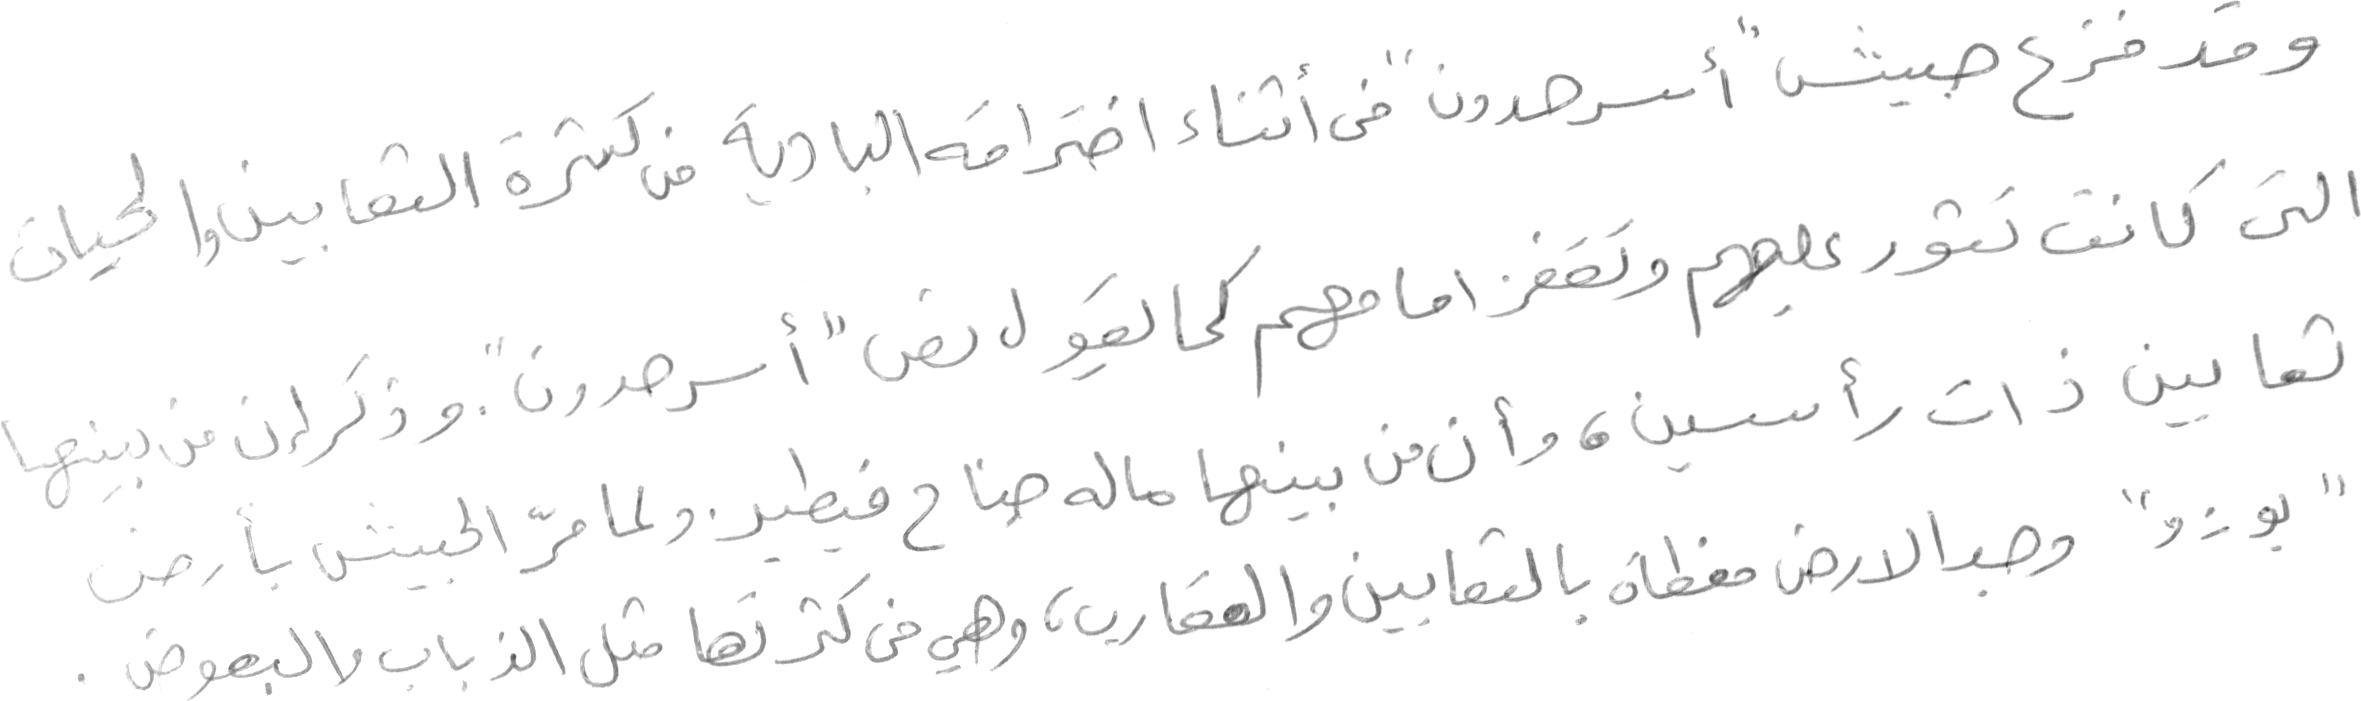 وقد فزع جيش "أسرحدون" فى أثناء اختراقه البادية من كثرة الثعابين والحيات
التى كانت تثور عليهم وتقفز امامهم كما يقول نص "أسرحدون". وذكر ان من بينها
ثعابين ذات رأسين، وأن من بينها ماله جناح فيطير. ولما مرّ الجيش بأرض
"بوزو" وجد الارض مغطاة بالثعابين والعقارب، وهي فى كثرتها مثل الذباب والبعوض.